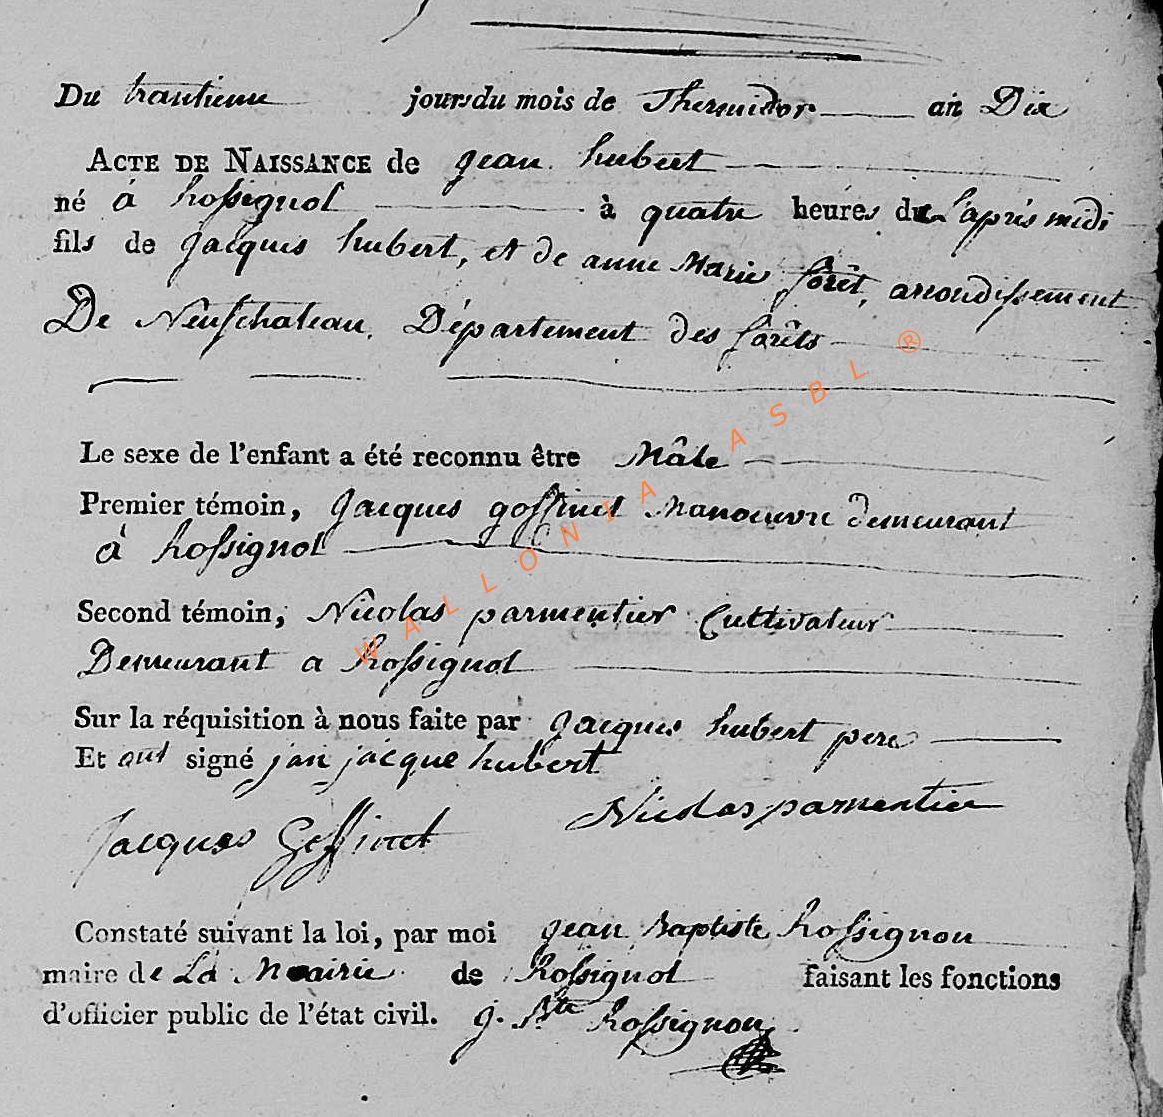 Du trantieme jours du mois de Thermidor an Dix
ACTE DE NAISSANCE de jean hubert
né à Rossignol à quatre heures du l'après midi
fils de jacques hubert, et de anne Marie forêt, arrondissement
De Neufchateau. Département des forêts
Le sexe de l'enfant a été reconnu être Mâle
Premier témoin, jacques goffinet Manoeuvre demeurant
à Rossignol
Second témoin, Nicolas parmentier Cultivateur
Demeurant a Rossignol
Sur la réquisition à nous faite par jacques hubert pere
Et ont signé jan jacque hubert
Nicolas parmentier
Jacques Goffinet
Constaté suivant la loi, par moi jean Baptiste Rossignon
maire de La Mairie de Rossignol faisant les fonctions
d'officier public de l'état civil. j. Bte Rossignon
WALLONIA ASBL ®